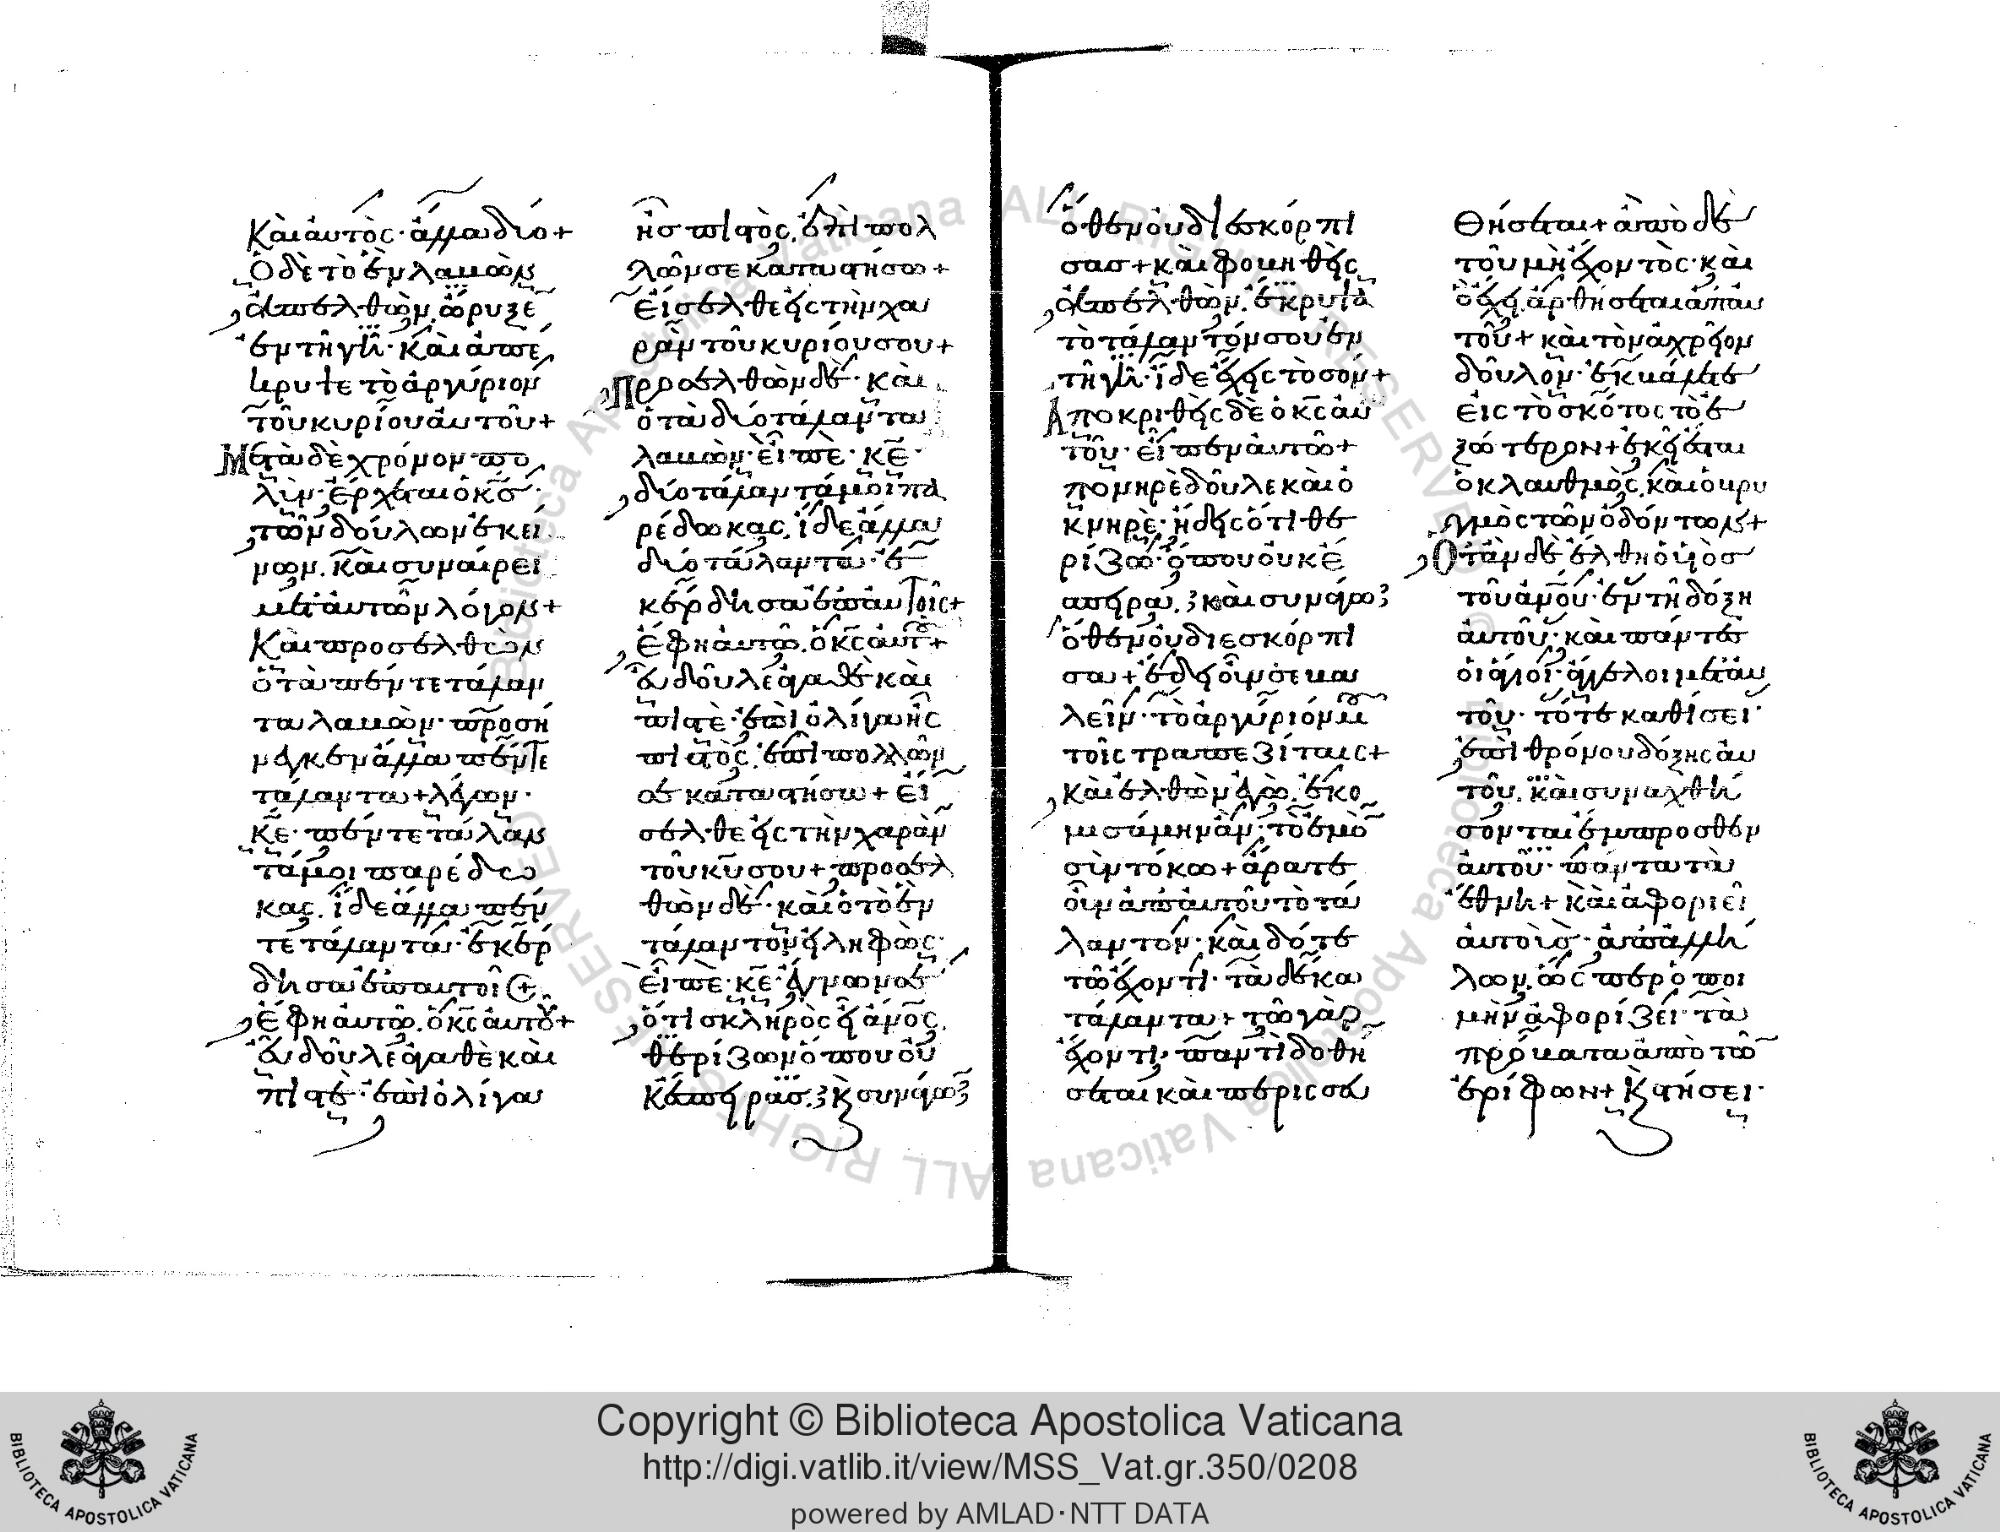 Καὶ αὐτὸς· ἄλλα δύο+
Ὁ δὲ τὸ ἓν λαβὼν
ἀπελθὼν, ὤρυξεν
ἐν τῇ γῇ· καὶ ἀπέ
κρυψε τὸ ἀργύριον
τοῦ κυρίου αὐτοῦ+
Μετὰ δὲ χρόνον πο
λὺν· ἔρχεται ὁ κς
τῶν δούλων ἐκεί
νων, καὶ συναίρει
μετ' αὐτῶν λόγον+
Καὶ προσελθὼν
ὁ τὰ πέντε τάλαν
τα λαβὼν· προσή
νεγκεν ἄλλα πέντε
τάλαντα+ λέγων·
κε· πέντε τάλαν
τά μοι παρέδω
κας, ἴδε ἄλλα πέν
τε τάλαντα· ἐκέρ
δησα ἐπ' αὐτοῖς+
Ἔφη αὐτῶ, ὁ κς αὐτοῦ+
Εὖ δοῦλε ἀγαθὲ καὶ
πιστὲ· ἐπὶ ὀλίγα
ἦς πιστὸς, ἐπὶ πολ
λῶν σε καταστήσω+
Εἴσελθε εἰς τὴν χα
ρὰν τοῦ κυρίου σου+
Προσελθὼν δὲ· καὶ
ὁ τὰ δύο τάλαντα
λαβὼν· εἶπε· κε·
δύο τάλαντά μοι πα
ρέδωκας, ἴδε ἄλλα
δύο τάλαντα· ἐ
κέρδησα ἐπ' αὐτοῖς+
Ἔφη αὐτῶ, ὁ κς αὐτ+
Εὖ δοῦλε ἀγαθὲ καὶ
πιστὲ· ἐπὶ ὀλίγα ἦς
πιστὸς, ἐπὶ πολλῶν
σε καταστήσω+ εἴ
σελθε εἰς τὴν χαρὰν
τοῦ κυ σου+ προσελ
θὼν δὲ· καὶ ὁ τὸ ἓν
τάλαντον εἰληφὼς·
εἶπε· κε· ἔγνων σε
ὅτι σκληρὸς εἶ ἄνος,
θερίζων ὅπου οὐ
κ ἔσπειρας, ϗ συνάγων
ὅθεν οὐ διεσκόρπι
σας+ καὶ φοβηθεὶς
ἀπελθὼν, ἔκρυψα
τὸ τάλαντόν σου ἐν
τῇ γῇ· ἴδε ἔχεις τὸ σόν+
Ἀποκριθεὶς δὲ ὁ κς αὐ
τοῦ· εἶπεν αὐτῶ+
πονηρὲ δοῦλε καὶ ὀ
κνηρὲ· ἤδεις ὅτι θε
ρίζω· ὅπου οὐκ ἔ
σπειρα, καὶ συνάγω
ὅθεν οὐ διεσκόρπι
σα+ ἔδει οὖν σε βα
λεῖν· τὸ ἀργύριόν μου
τοῖς τραπεζίταις+
καὶ ἐλθὼν ἐγὼ, ἐκο
μισάμην ἂν, τὸ ἐμὸν
σὺν τόκω+ ἄρατε
οὖν ἀπ' αὐτοῦ τὸ τά
λαντον· καὶ δότε
τῶ ἔχοντι· τὰ δέκα
τάλαντα+ τῶ γὰρ
ἔχοντι· παντὶ δοθή
σεται καὶ περισσευ
θήσεται+ ἀπὸ δὲ
τοῦ μὴ ἔχοντος· καὶ
ὃ ἔχει, ἀρθήσεται ἀπ' αὐ
τοῦ+ καὶ τὸν ἀχρεῖον
δοῦλον· ἐκβάλετε
εἰς τὸ σκότος τὸ ἐ
ξώτερον+ ἐκεῖ ἔσται
ὁ κλαυθμὸς, καὶ ὁ βρυ
γμὸς τῶν ὀδόντων+
Ὅταν δὲ ἔλθη ὁ υἱὸς
τοῦ ἀνου· ἐν τῇ δόξη
αὐτοῦ, καὶ πάντες
οἱ ἅγιοι· ἄγγελοι μετ' αὐ
τοῦ· τότε καθίσει·
ἐπὶ θρόνου δόξης αὐ
τοῦ, καὶ συναχθή
σονται ἔμπροσθεν
αὐτοῦ· πάντα τὰ
ἔθνη+ καὶ ἀφοριεῖ
αὐτοὺς· ἀπ' ἀλλή
λων, ὥσπερ ὁ ποι
μὴν ἀφορίζει· τὰ
πρόβατα ἀπὸ τῶν
ἐρίφων+ ϗ στήσει·
Copyright © Biblioteca Apostolica Vaticana
http://digi.vatlib.it/view/MSS_Vat.gr.350/0208
powered by AMLAD·NTT DATA
BIBLIOTECA APOSTOLICA VATICANA
BIBLIOTECA APOSTOLICA VATICANA